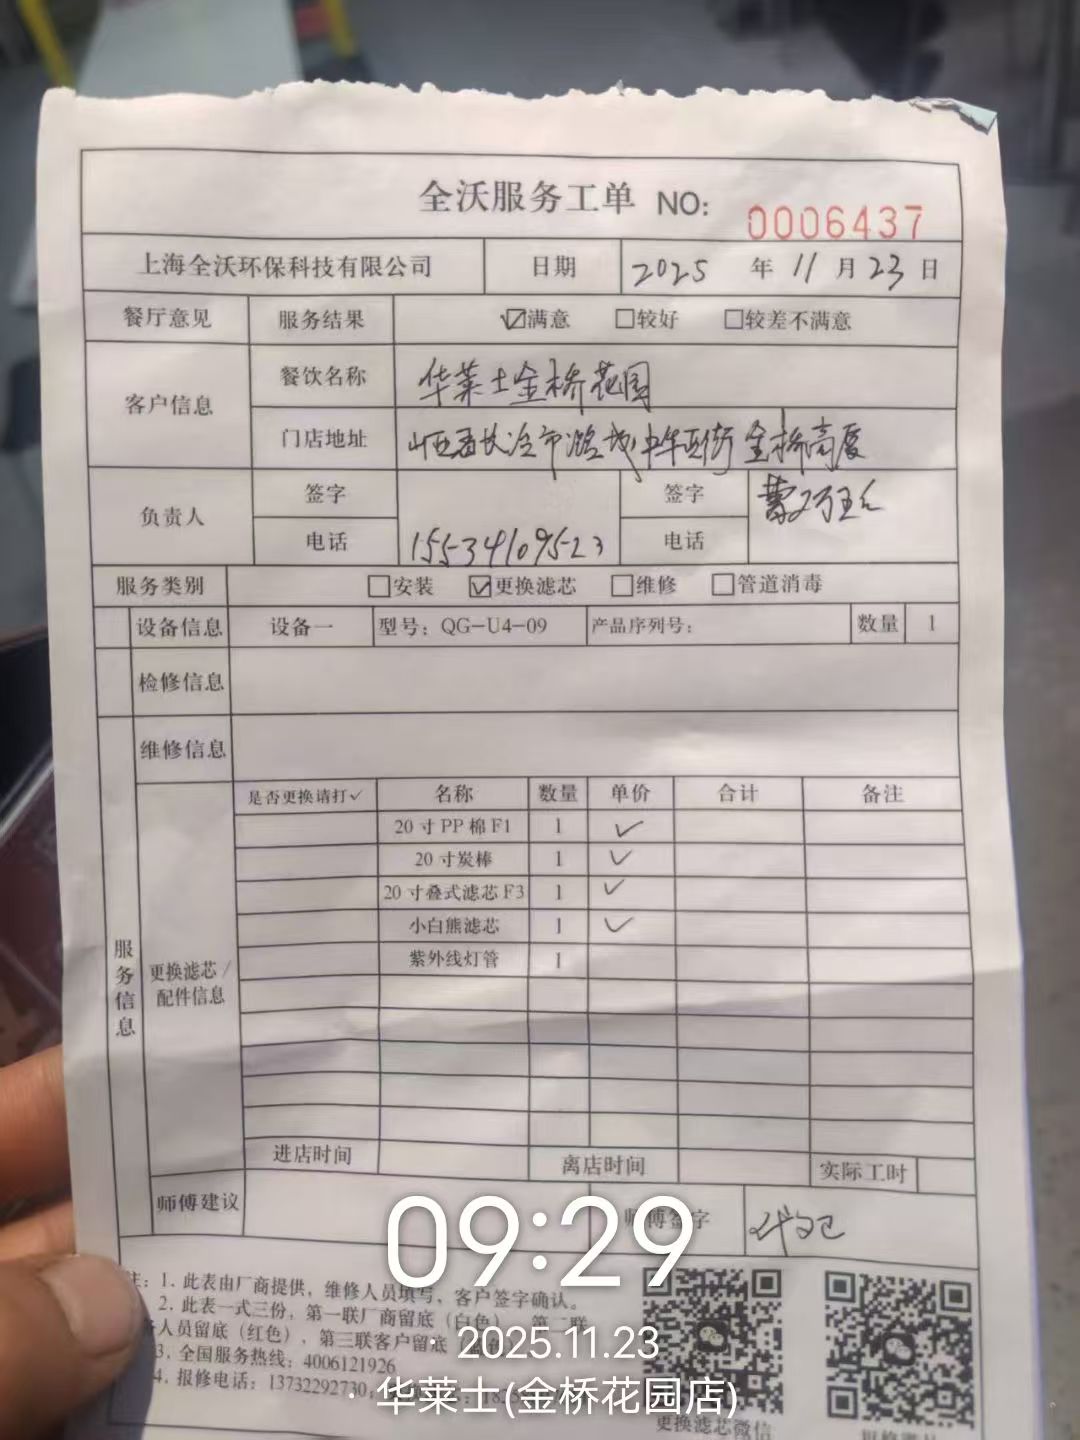 全沃服务工单 NO: 0006437
上海全沃环保科技有限公司 日期 2025 年 11 月 23 日
餐厅意见 服务结果 ☑满意 □较好 □较差不满意
客户信息 餐饮名称 华莱士金桥花园
门店地址 山西省长治市潞城中华正街金桥高厦
负责人 签字 签字
电话 15534109523 电话
服务类别 □安装 ☑更换滤芯 □维修 □管道消毒
设备信息 设备一 型号：QG-U4-09 产品序列号： 数量 1
检修信息
维修信息
服务信息
更换滤芯/配件信息
是否更换请打✓ 名称 数量 单价 合计 备注
20寸PP棉F1 1 ✓
20寸炭棒 1 ✓
20寸叠式滤芯F3 1 ✓
小白熊滤芯 1 ✓
紫外线灯管 1
进店时间 离店时间 实际工时
师傅建议 师傅签字
09:29
注：1. 此表由厂商提供，维修人员填写，客户签字确认。
2. 此表一式三份，第一联厂商留底（白色），第二联
务人员留底（红色），第三联客户留底
3. 全国服务热线：4006121926
4. 报修电话：13732292730；
· 2025.11.23
· 华莱士(金桥花园店)
更换滤芯微信